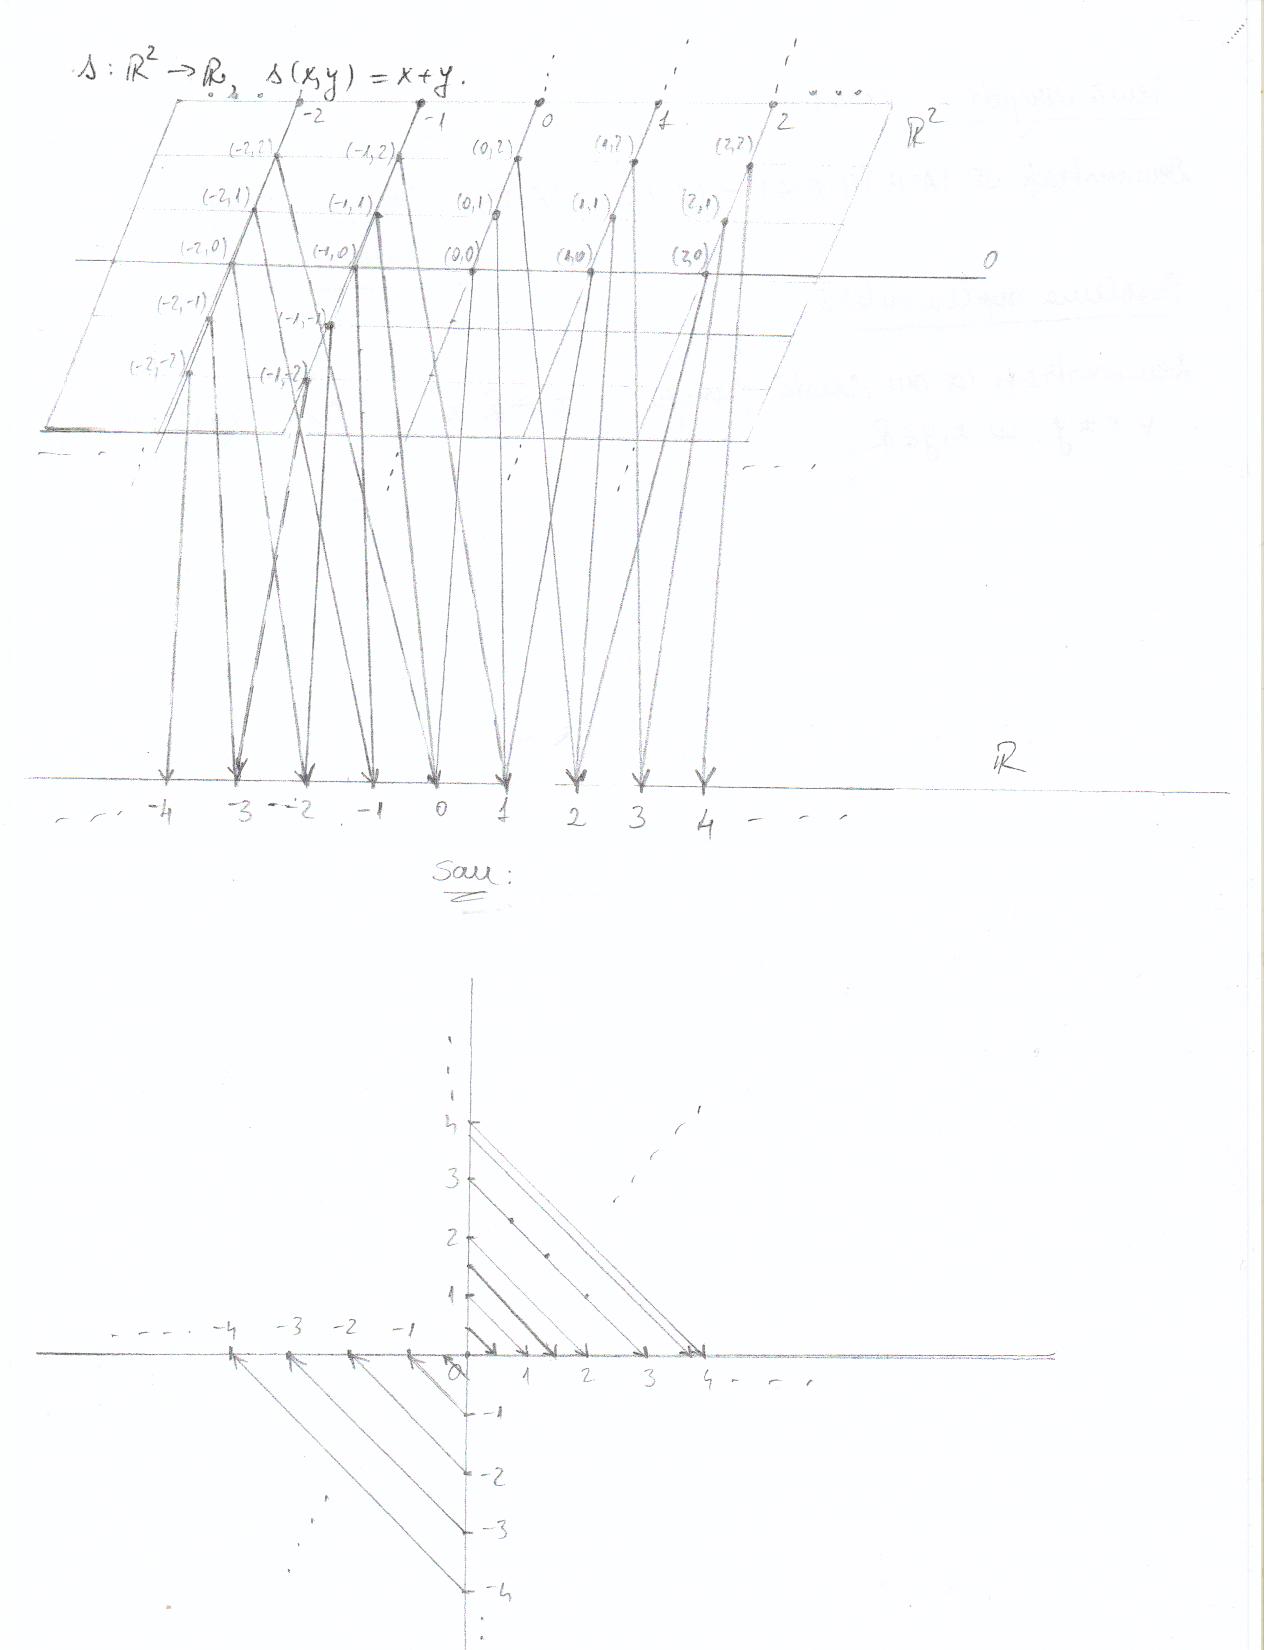 s: ℝ² → ℝ, s(x,y) = x+y.
-2 -1 0 1 2
ℝ²
(-2,2) (-1,2) (0,2) (1,2) (2,2)
(-2,1) (-1,1) (0,1) (1,1) (2,1)
(-2,0) (-1,0) (0,0) (1,0) (2,0) 0
(-2,-1) (-1,-1)
(-2,-2) (-1,-2)
ℝ
-4 -3 -2 -1 0 1 2 3 4
Sau:
4
3
2
1
-4 -3 -2 -1
0 1 2 3 4
-1
-2
-3
-4